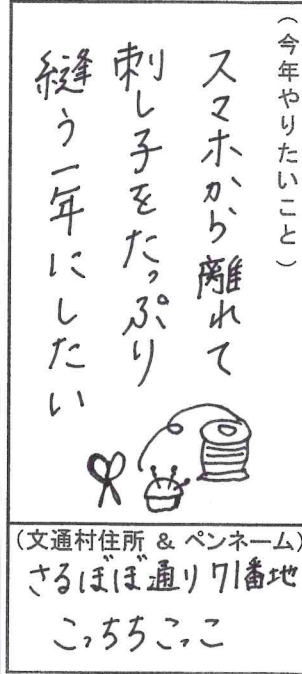 （今年やりたいこと）
スマホから離れて
刺し子をたっぷり
縫う一年にしたい
（文通村住所 & ペンネーム）
さるぼぼ通り71番地
こっちちこっこ